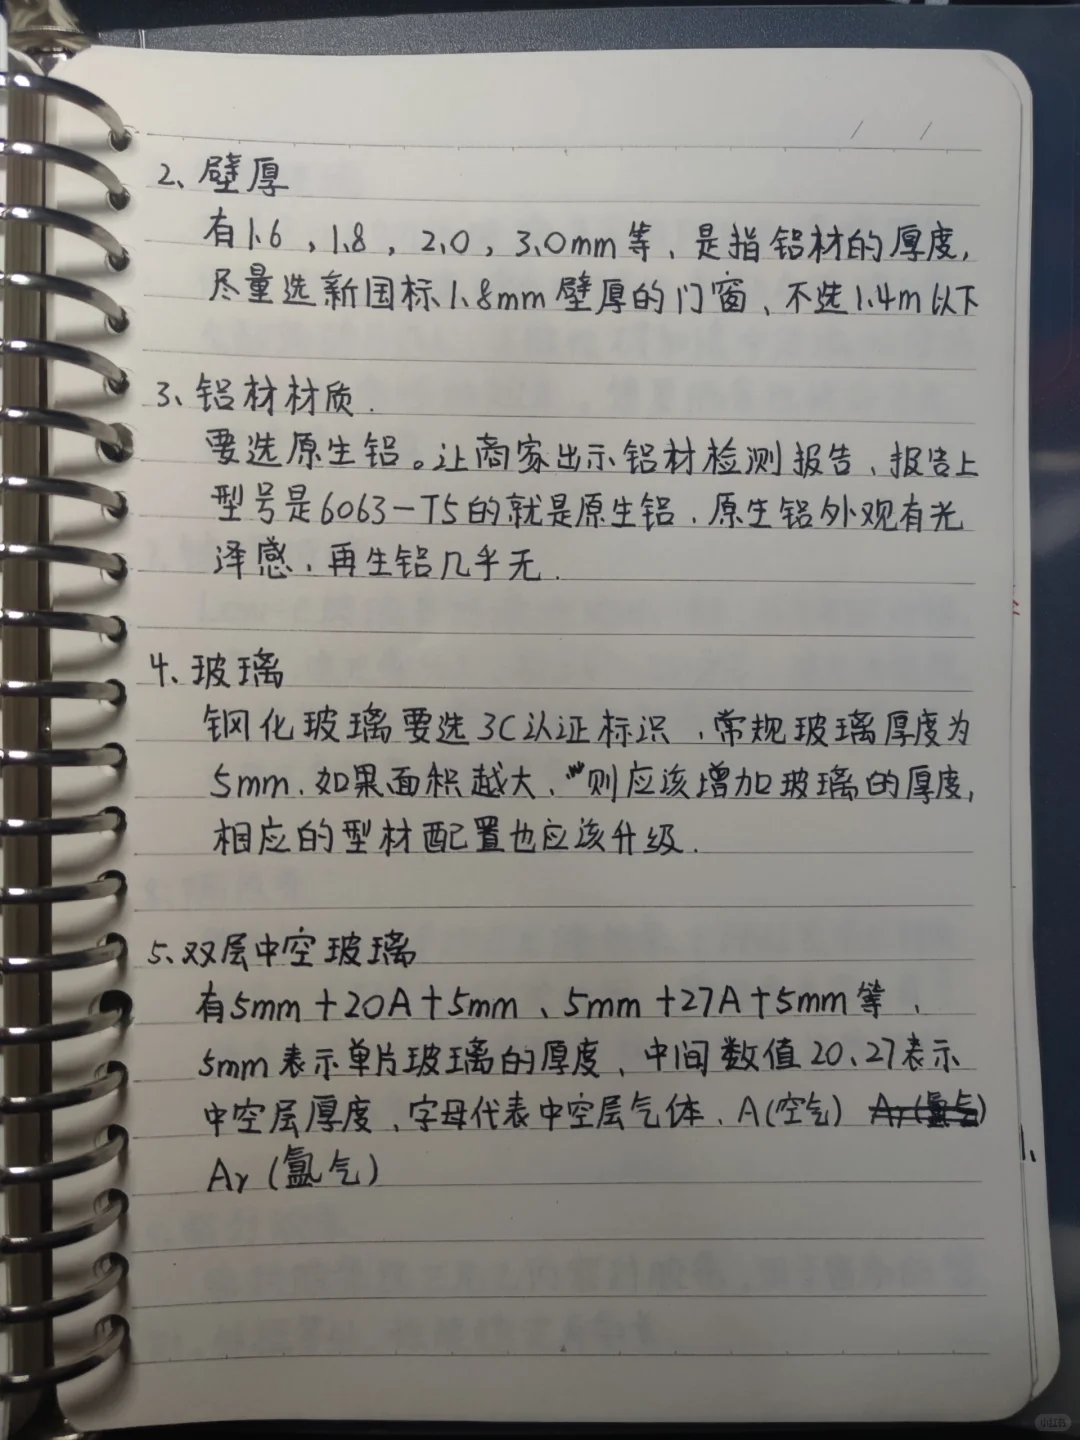 2、壁厚
有1.6，1.8，2.0，3.0mm等、是指铝材的厚度，
尽量选新国标1.8mm壁厚的门窗、不选1.4m以下
3、铝材材质.
要选原生铝。让商家出示铝材检测报告、报告上
型号是6063-T5的就是原生铝、原生铝外观有光
泽感、再生铝几乎无.
4、玻璃
钢化玻璃要选3C认证标识，常规玻璃厚度为
5mm.如果面积越大、则应该增加玻璃的厚度，
相应的型材配置也应该升级.
5、双层中空玻璃
有5mm+20A+5mm、5mm+27A+5mm等、
5mm表示单片玻璃的厚度、中间数值20、27表示
中空层厚度、字母代表中空层气体、A(空气) Ar(氩气)
Ar(氩气)
1、
小红书